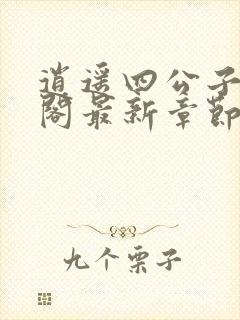 逍遥四公子
阁最新章节
九个栗子